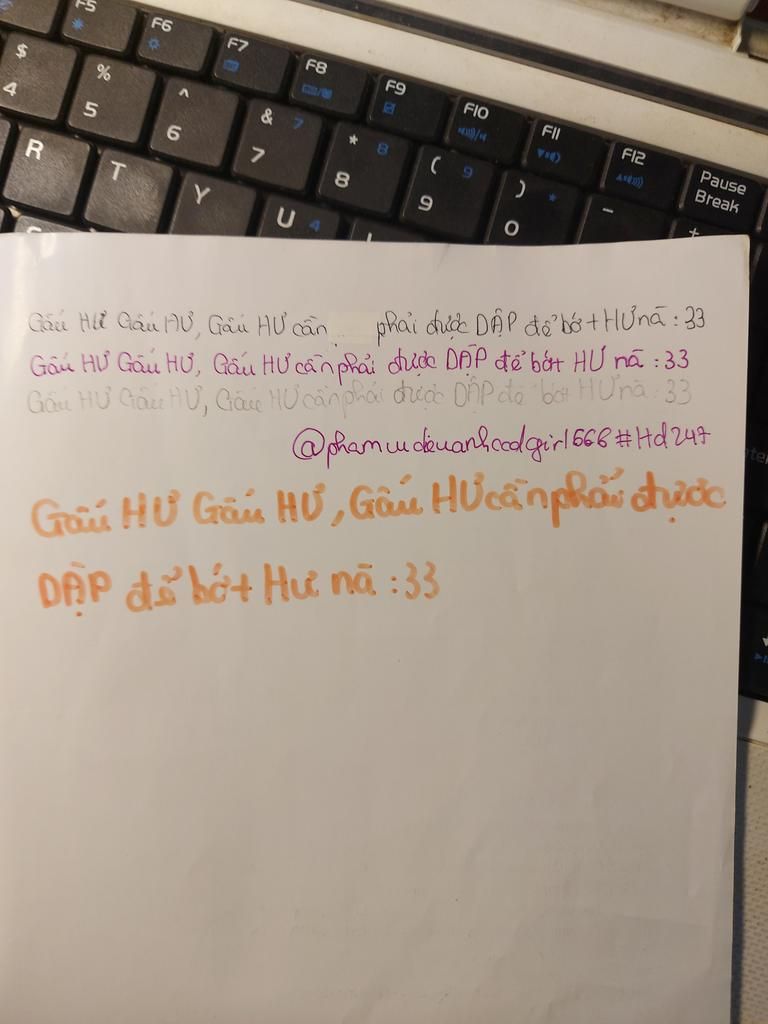 F5 F6 F7 F8 F9 F10 F11 F12 Pause Break
$ 4 % 5 ^ 6 & 7 7 * 8 8 ( 9 9 ) 0 * -
R T Y U 4 +
Gấu HƯ Gấu HƯ, Gấu HƯ cần phải được DẬP để bớt HƯ nã : 33
Gấu HƯ Gấu HƯ, Gấu HƯ cần phải được DẬP để bớt HƯ nã : 33
Gấu HƯ Gấu HƯ, Gấu HƯ cần phải được DẬP để bớt HƯ nã : 33
#Hd247
Gấu HƯ Gấu HƯ, Gấu HƯ cần phải được
DẬP để bớt Hư nã : 33